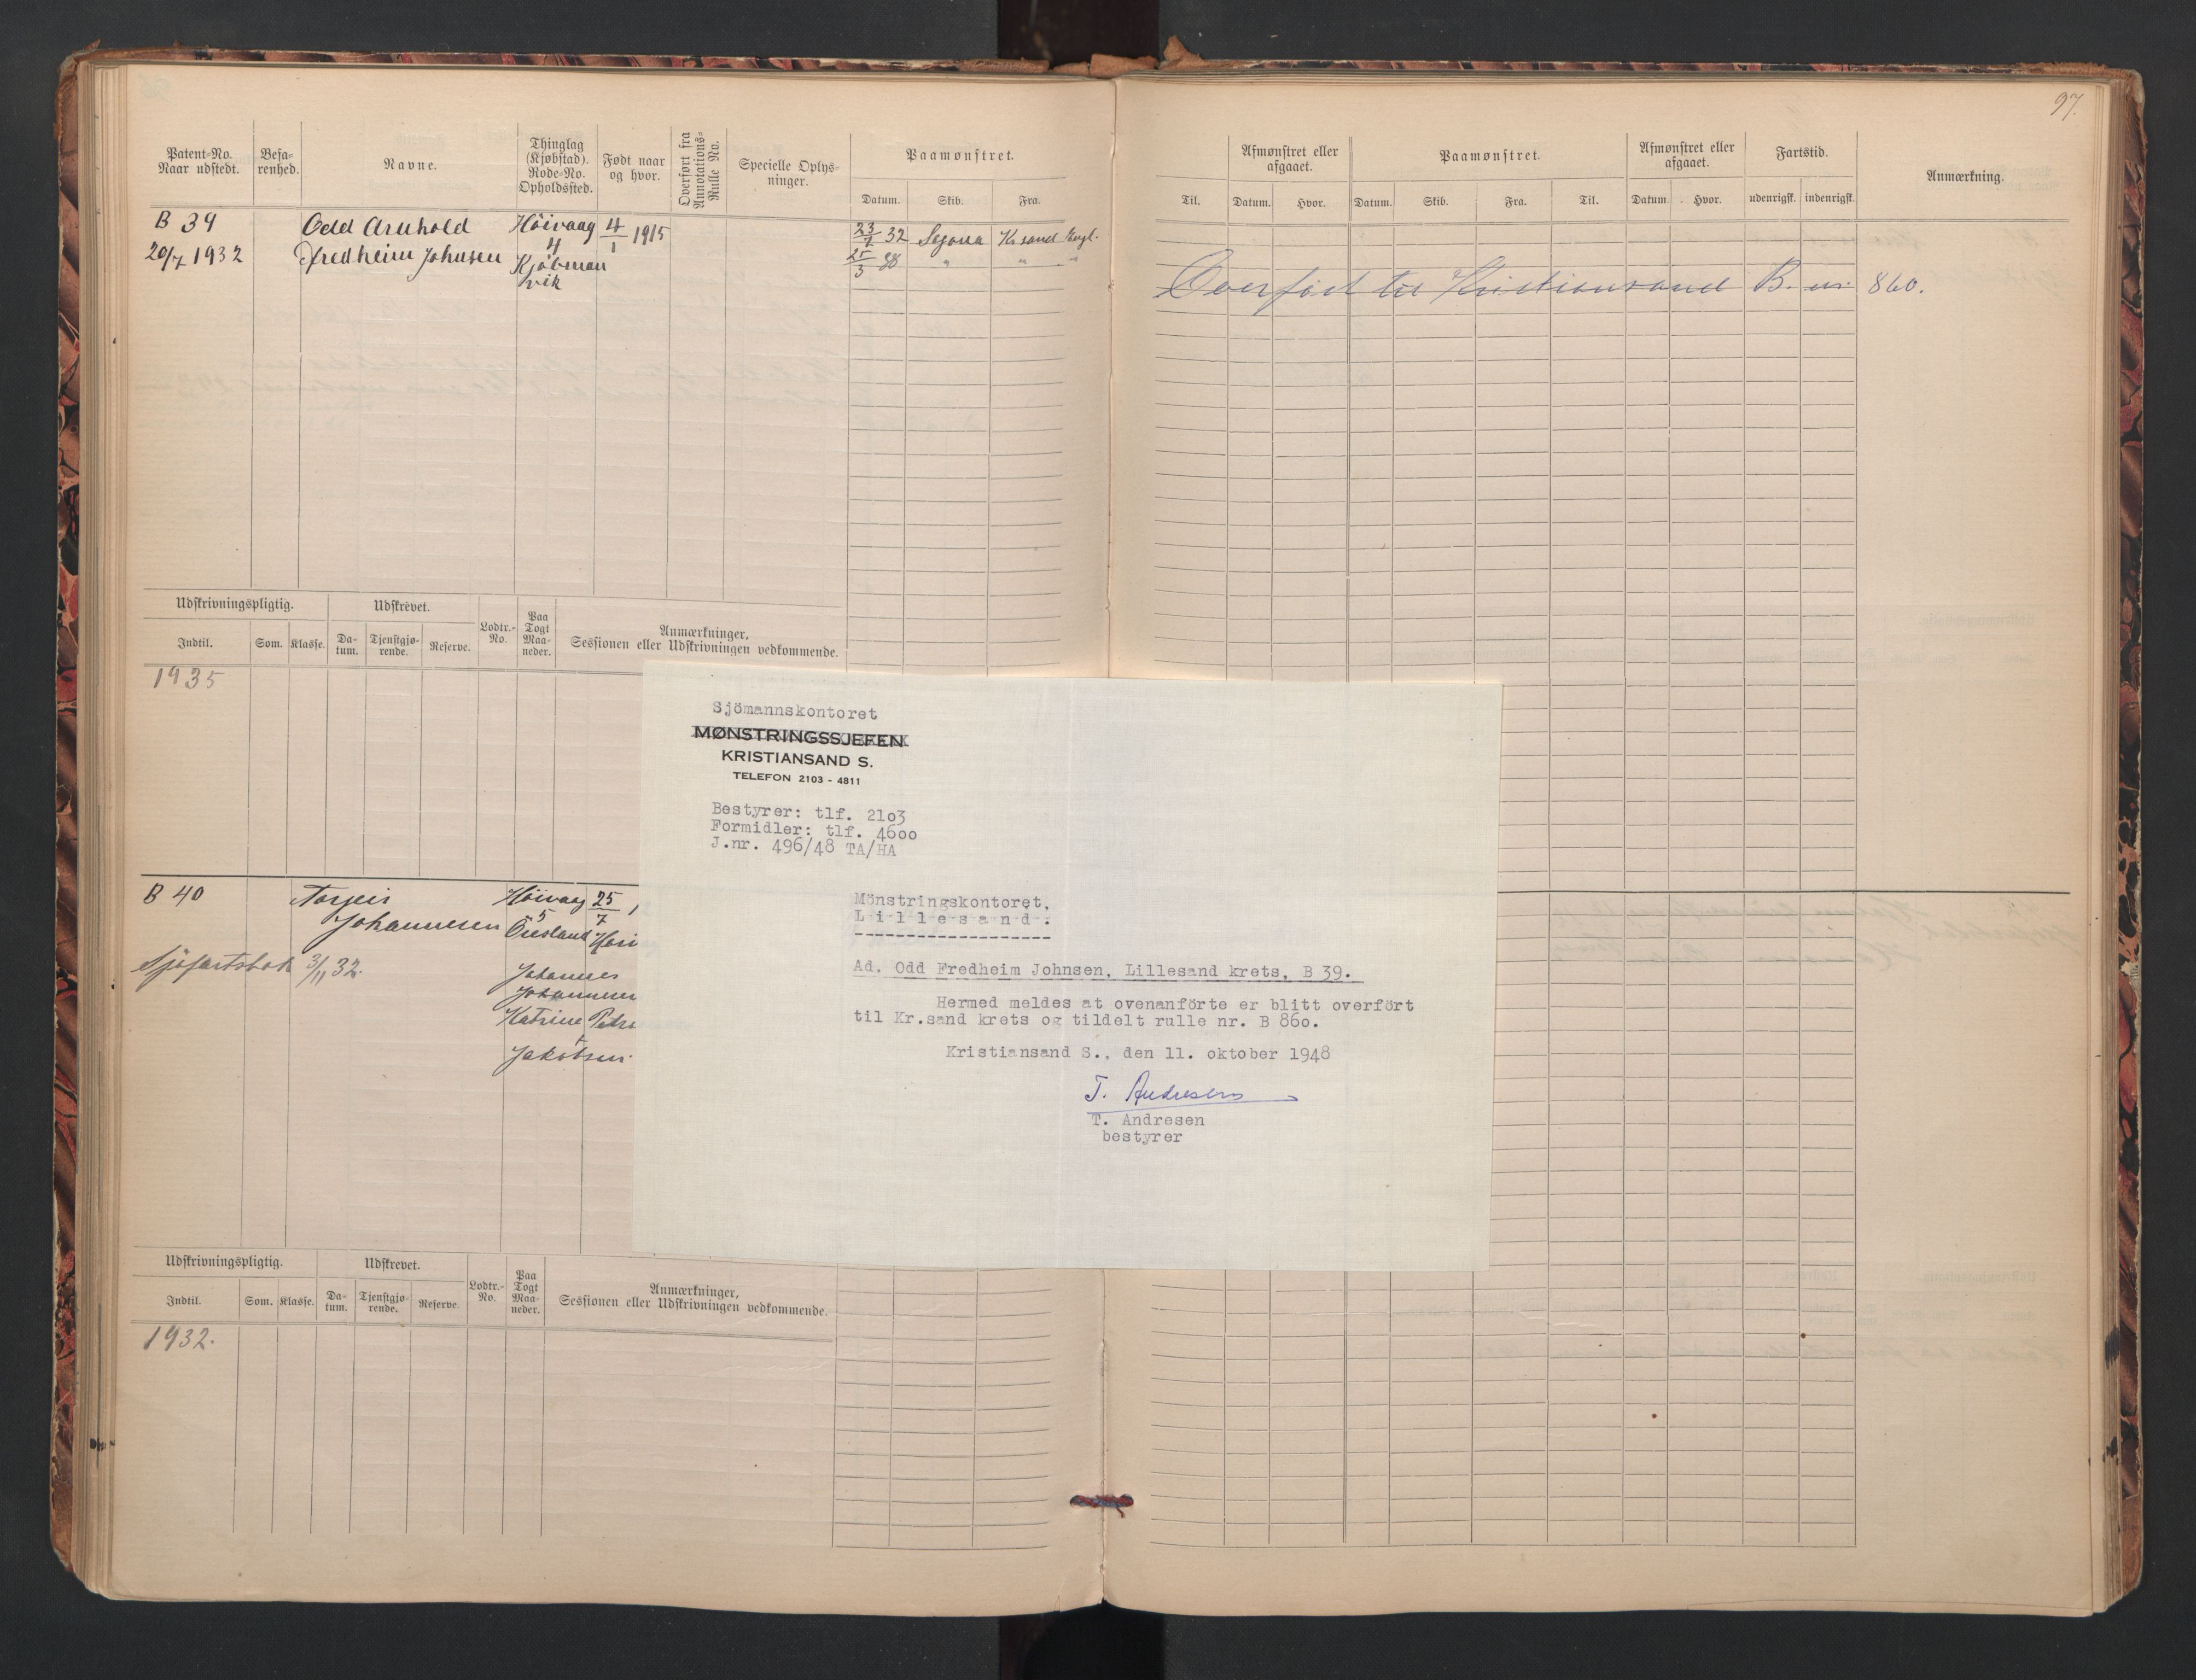 97.
Patent-No. Naar udstedt.
Befa-renhed.
Navne.
Thinglag (Kjøbstad). Rode-No. Opholdssted.
Født naar og hvor.
Overført fra Annotations-Rulle No.
Specielle Oplys-ninger.
Paamønstret.
Datum. Skib. Fra.
Til.
Afmønstret eller afgaaet.
Datum. Hvor.
Paamønstret.
Datum. Skib. Fra. Til.
Afmønstret eller afgaaet.
Datum. Hvor.
Fartstid.
udenrigsk. indenrigsk.
Anmærkning.
B 39 Odd Arnhold Höivaag 4/1 1915 23/7 32 Segona Kr.sand Engl.
20/7 1932 Fredheim Johnsen 4 25/3 38 " " "
Kjöbman
vik
Overført til Kristiansand B. nr. 860.
Udskrivningspligtig. Udskrevet. Lodtr.-No. Paa Togt Maa-neder. Anmærkninger, Sessionen eller Udskrivningen vedkommende.
Indtil. Som. Klasse. Da-tum. Tjenstgjø-rende. Reserve.
1935
Sjömannskontoret
MØNSTRINGSSJEFEN
KRISTIANSAND S.
TELEFON 2103 - 4811
Bestyrer: tlf. 21o3
Formidler: tlf. 46oo
J.nr. 496/48 TA/HA
Mönstringskontoret,
L i l l e s a n d .
-------------------
Ad. Odd Fredheim Johnsen, Lillesand krets, B 39.
Hermed meldes at ovenanförte er blitt overfört
til Kr.sand krets og tildelt rulle nr. B 86o.
Kristiansand S., den 11. oktober 1948
T. Andresen
T. Andresen
bestyrer
B 40 Torgeir Höivaag 25/7
Johannesen 5
Öiesland
Sjöfartsbok 3/11 32. Johannes
Johannesen
Katrine Petr
Jakobsen.
Udskrivningspligtig. Udskrevet. Lodtr.-No. Paa Togt Maa-neder. Anmærkninger, Sessionen eller Udskrivningen vedkommende.
Indtil. Som. Klasse. Da-tum. Tjenstgjø-rende. Reserve.
1932.